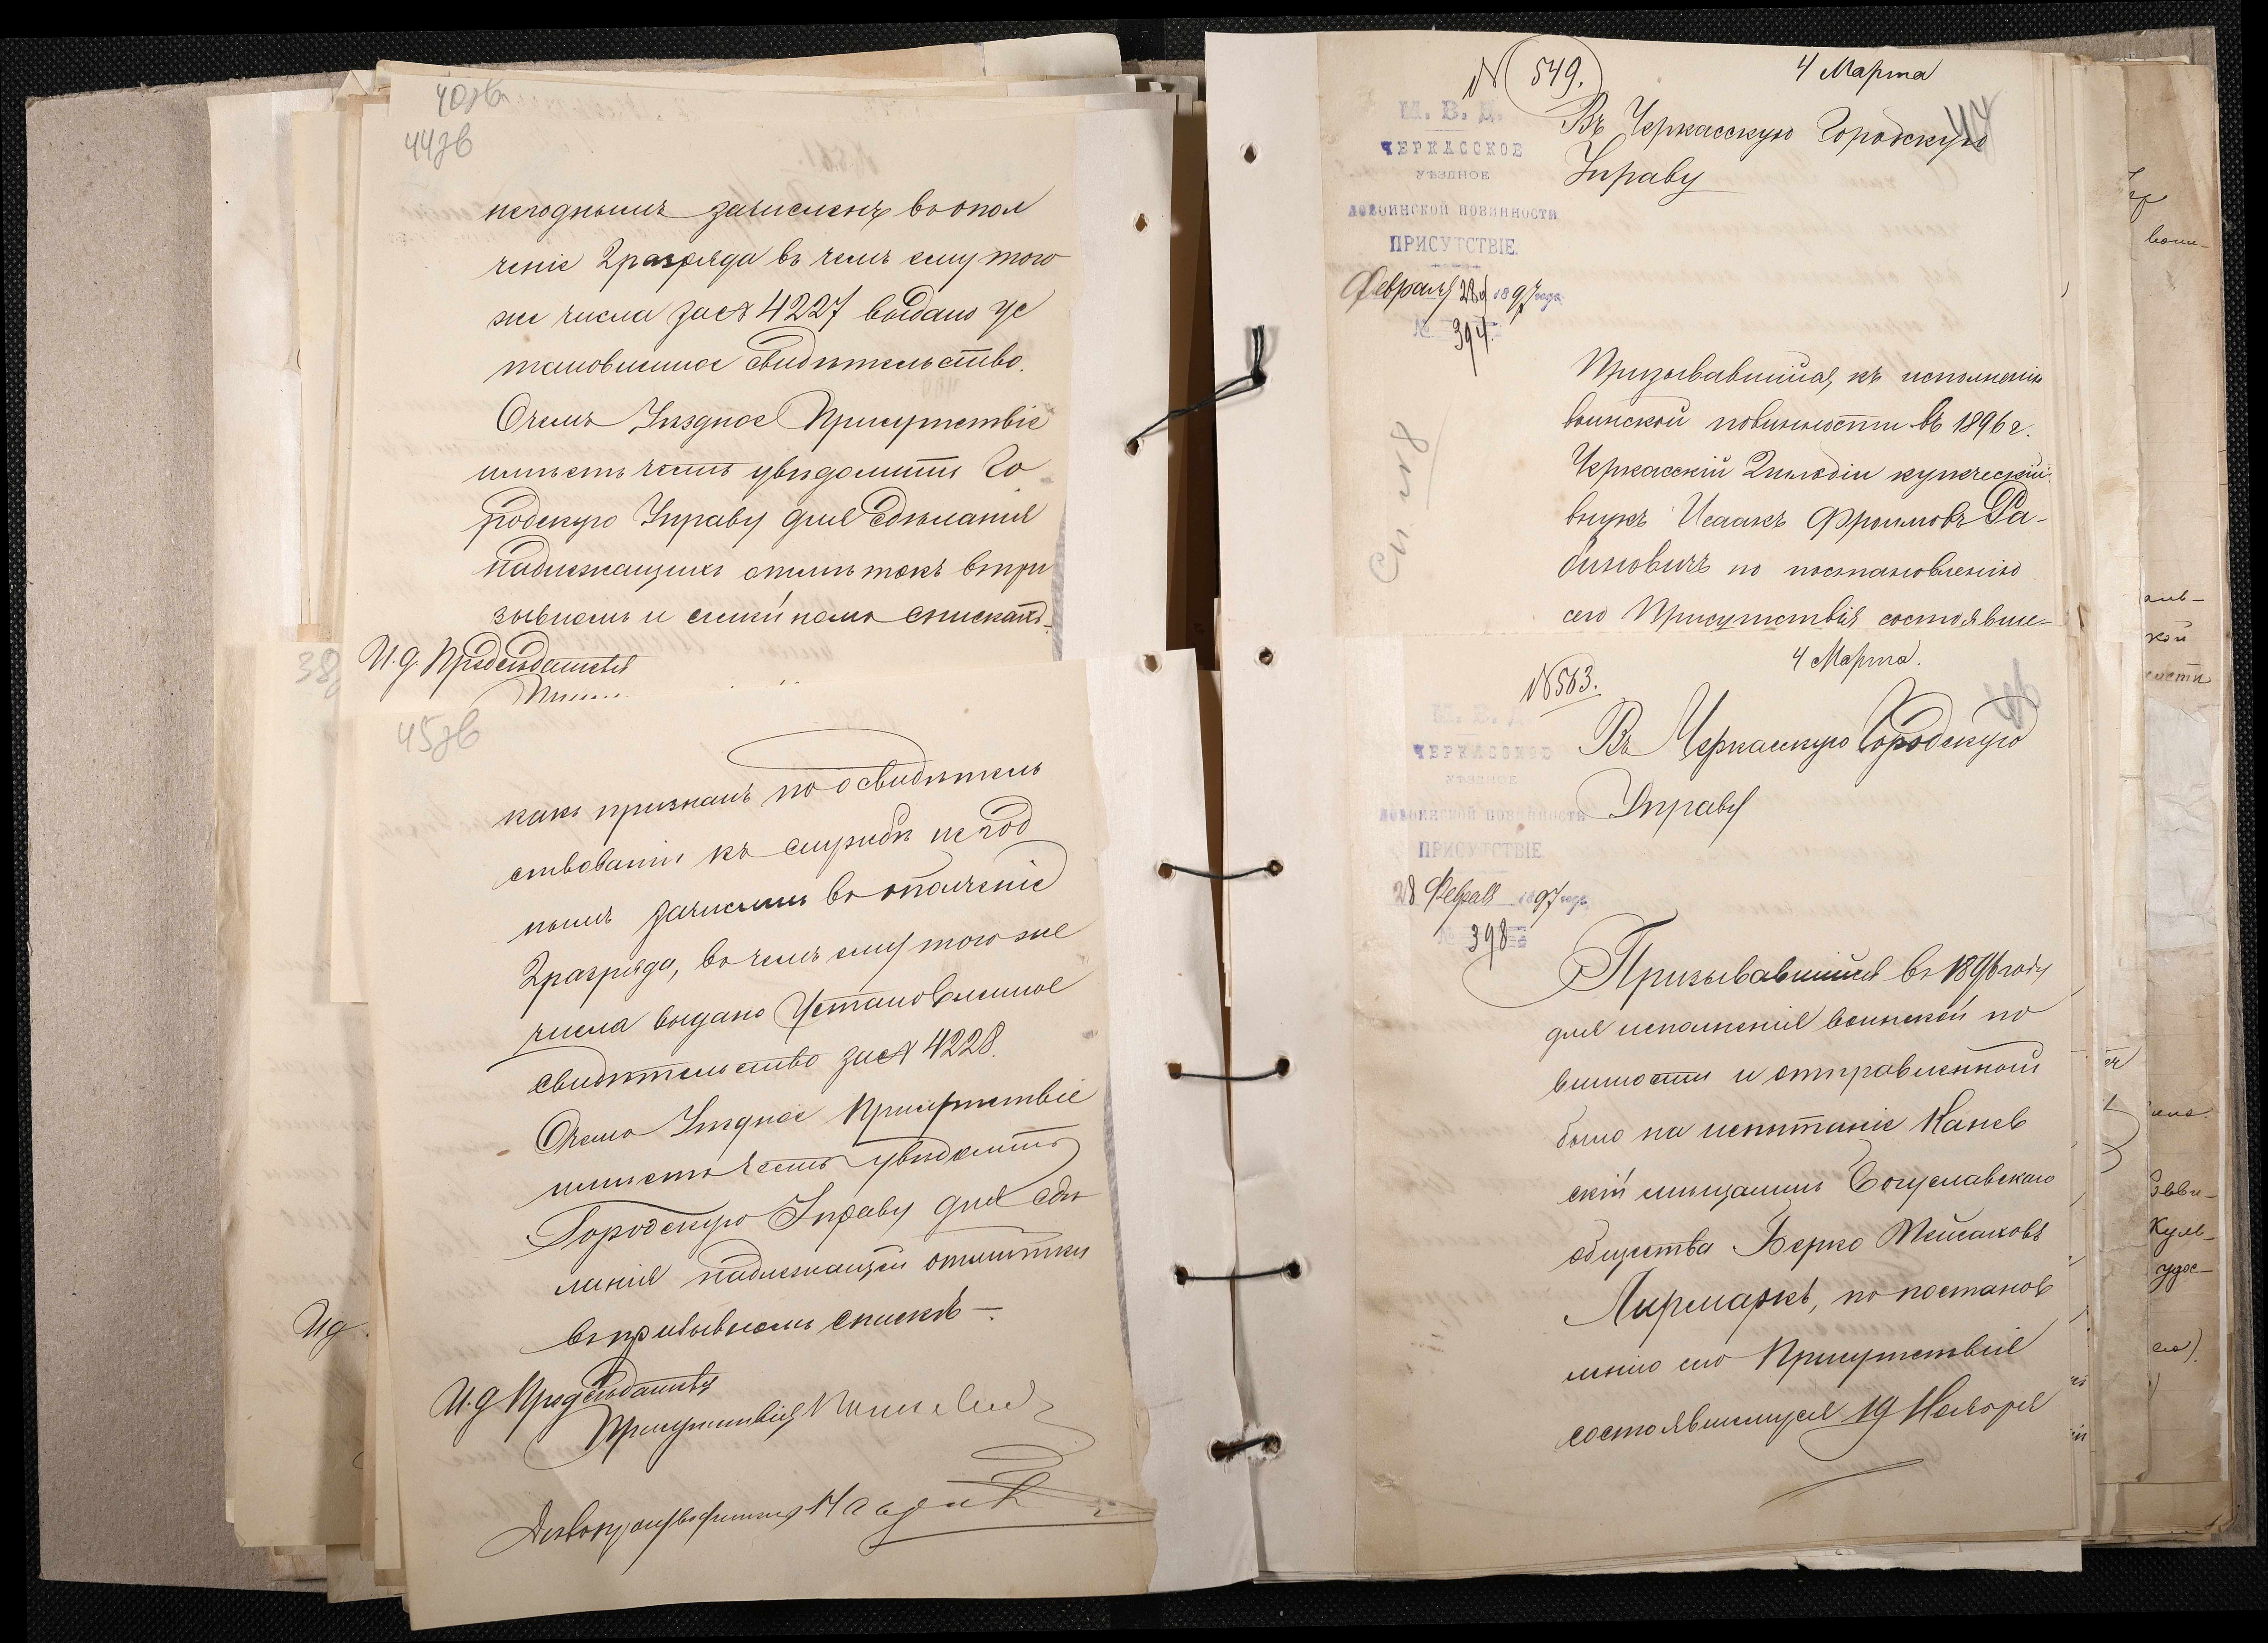 40зв
44зв
негоднымъ зачисленъ въ опол
ченіе 2 разряда въ чемъ ему того
же числа за № 4227 выдано ус
тановленное свидѣтельство.
О чемъ Уѣздное Присутствіе
имѣетъ честь увѣдомить Го
родскую Управу для сдѣланія
надлежащихъ отмѣтокъ въ при
зывномъ и семейномъ спискахъ.
И.д. Предсѣдателя
38
45зв
какъ признанъ по освидѣтель
ствованіи къ службѣ негод
нымъ зачисленъ въ ополченіе
2 разряда, въ чемъ ему того же
числа выдано установленное
свидѣтельство за № 4228.
О чемъ Уѣздное Присутствіе
имѣетъ честь увѣдомить
Городскую Управу для сдѣ
ланія надлежащей отмѣтки
въ призывномъ спискѣ —.
И.д. Предсѣдателя
Присутствія
Дѣлопроизводитель
Ид.
№ 549.
4 Марта
М. В. Д.
ЧЕРКАССКОЕ
УѢЗДНОЕ
ПО ВОИНСКОЙ ПОВИННОСТИ
ПРИСУТСТВІЕ.
Февраля 28 д 1897 года
№ 394.
Въ Черкасскую Городскую
Управу
Призывавшійся къ исполненію
воинской повинности въ 1896 г.
Черкасскій 2 гильдіи купеческій
внукъ Исаакъ Фроимовъ Ра-
биновичъ по постановленію
сего Присутствія состоявше-
№ 563.
4 Марта.
М. В. Д.
ЧЕРКАССКОЕ
УѢЗДНОЕ
ПО ВОИНСКОЙ ПОВИННОСТИ
ПРИСУТСТВІЕ
28 Февраля 1897 года
№ 398
Въ Черкасскую Городскую
Управу
Призывавшійся въ 1896 году
для исполненія воинской по
винности и отправленный
было на испытаніе Канев
скій мѣщанинъ Богуславскаго
общества Берко Мейсаховъ
Лирмаркъ, по постанов
ленію сего Присутствія
состоявшемуся 19 Ноября